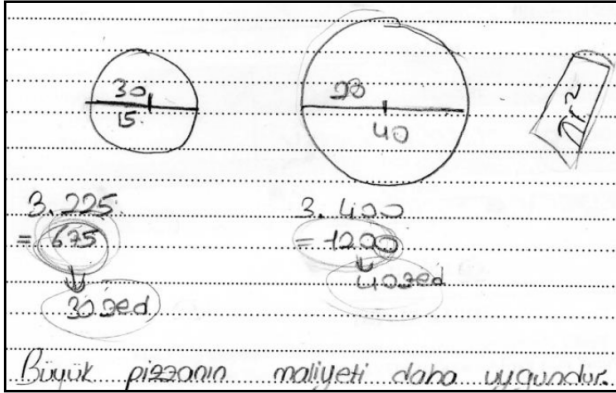 30
15
20
40
πr²
3.225
= 675
30 zed
3. 400
= 1200
40 zed
Büyük pizzanın maliyeti daha uygundur.